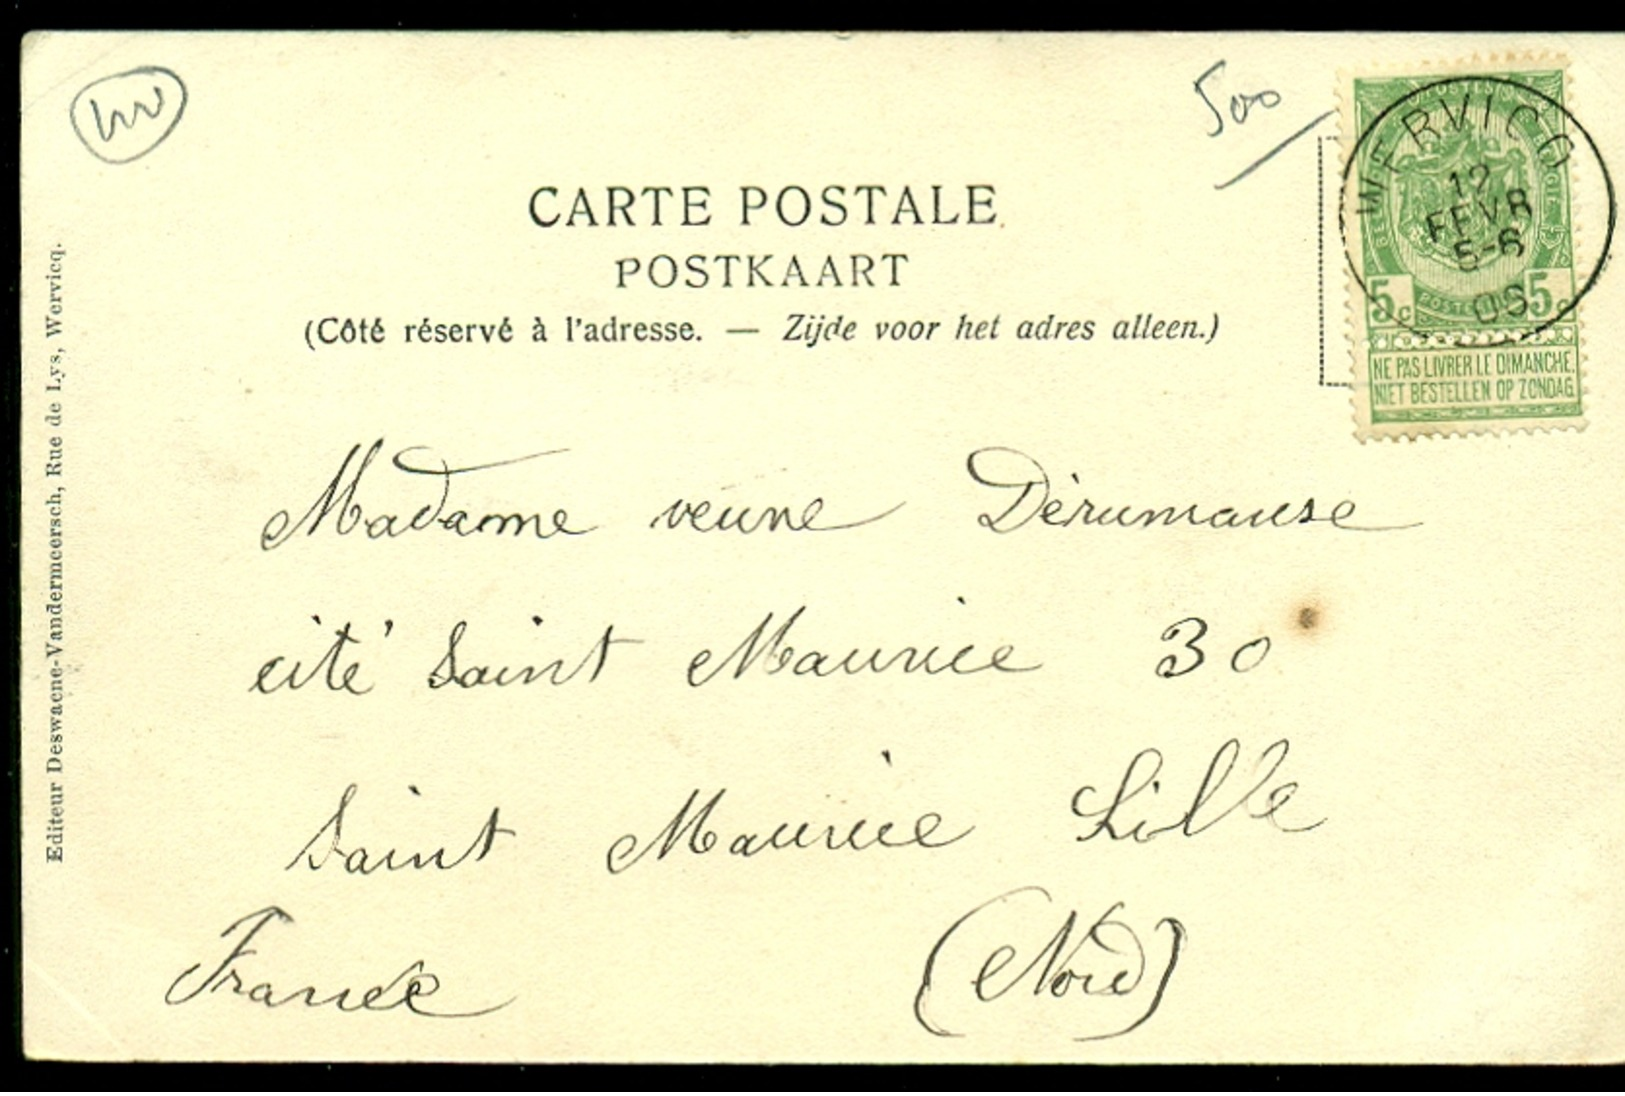 500
WERVICQ
12
FEVR
5-6
06
5c 5c
NE PAS LIVRER LE DIMANCHE.
NIET BESTELLEN OP ZONDAG
CARTE POSTALE
POSTKAART
(Côté réservé à l'adresse. — Zijde voor het adres alleen.)
Editeur Deswaene-Vandermeersch, Rue de Lys, Wervicq.
Madame veuve Dérumause
cité Saint Maurice 30
Saint Maurice Lille
France (Nord)